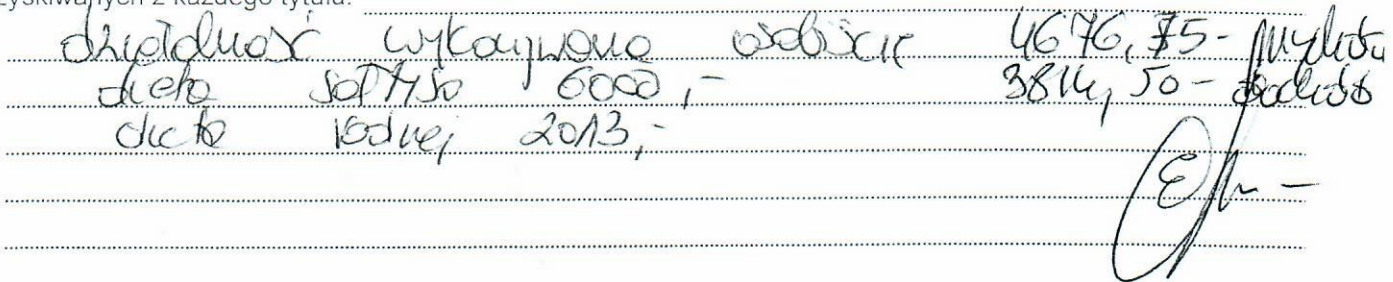 zyskiwanych z każdego tytułu:
działalność wykonywana osobiście 4676,75- przychód
dieta sołtysa 6000,- 3814,50- dochód
dieta radnej 2013,-